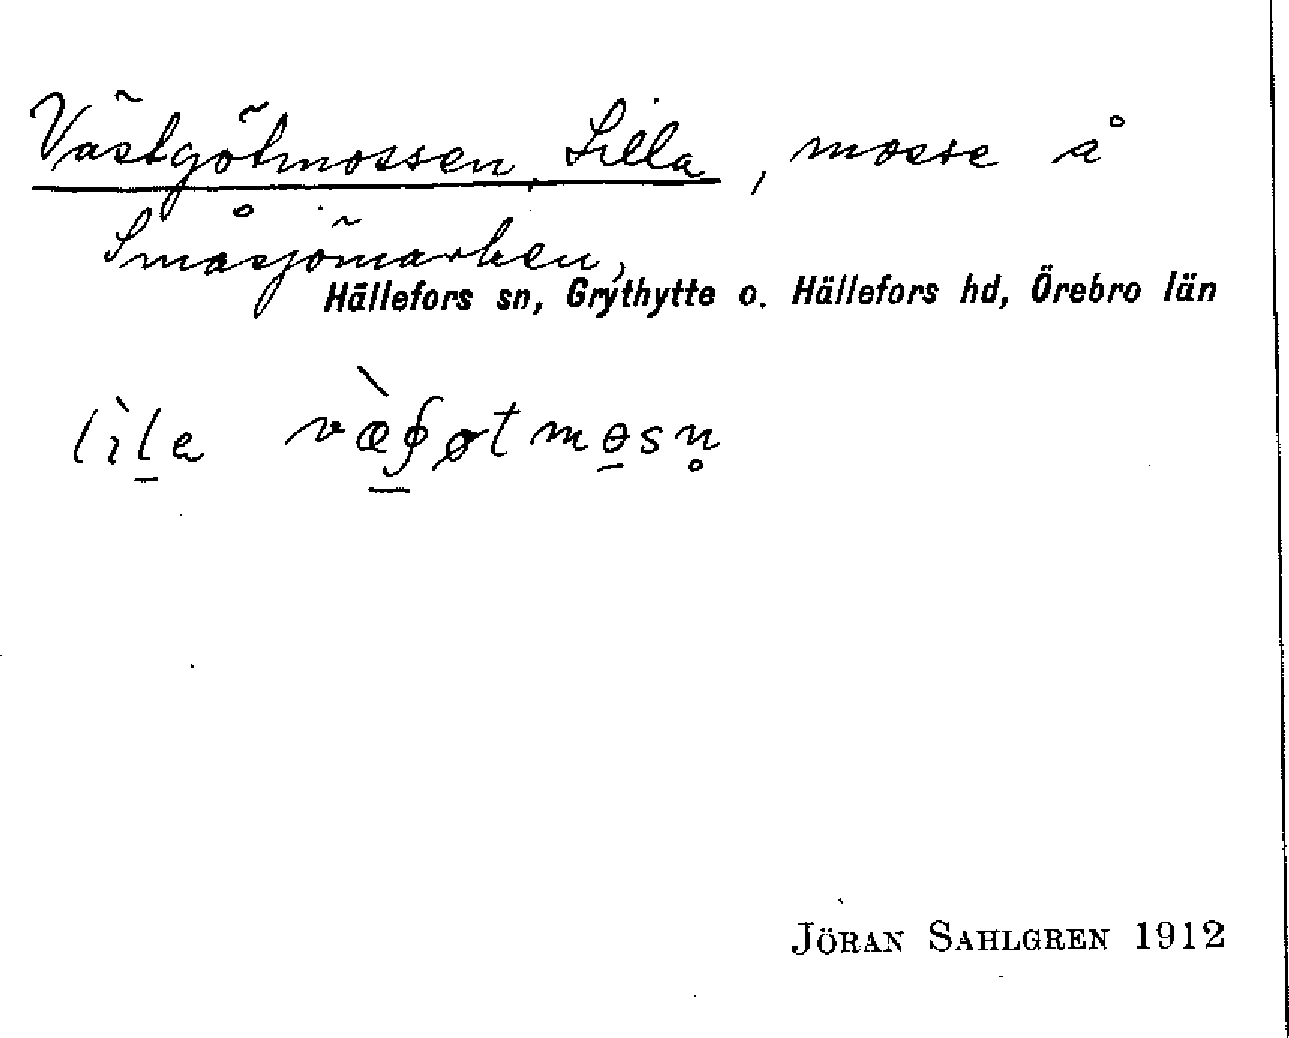 Västgötmossen, Lilla, mosse å
Småsjömarken,
Hällefors sn, Grythytte o. Hällefors hd, Örebro län
lìla
JÖRAN SAHLGREN 1912